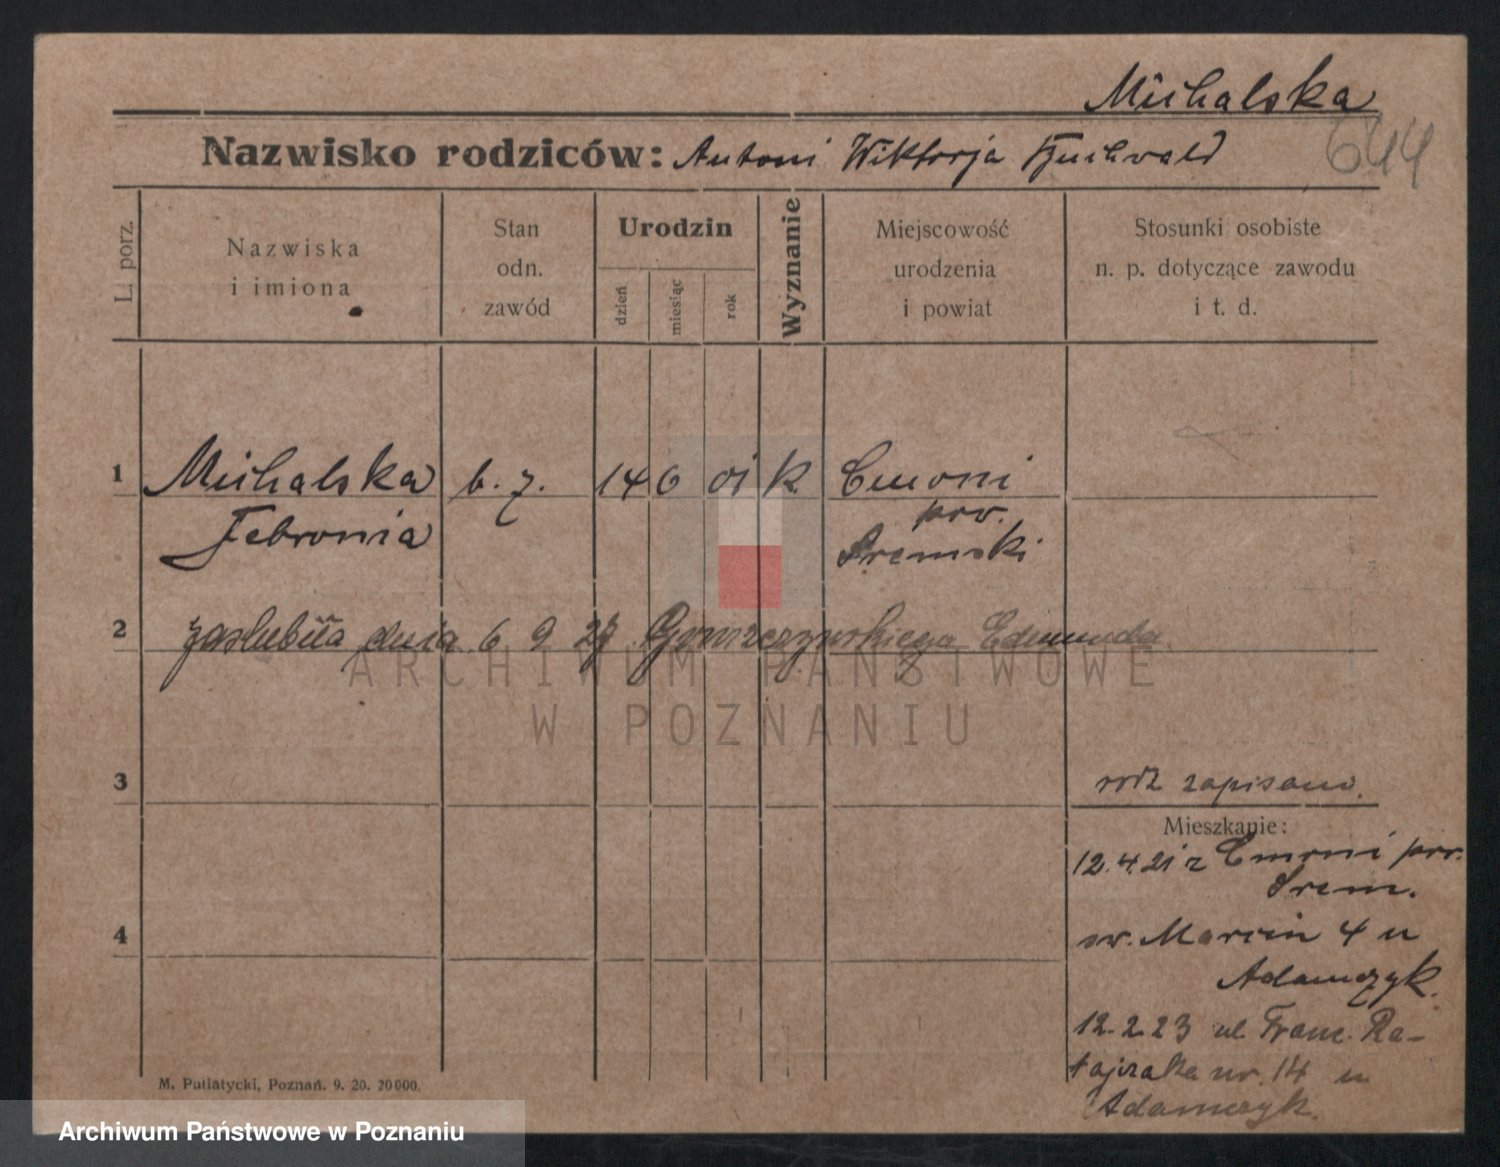 Michalska
644
Nazwisko rodziców: Antoni Wiktorja
L. porz.
Nazwiska
i imiona
Stan
odn.
zawód
Urodzin
dzień
miesiąc
rok
Wyznanie
Miejscowość
urodzenia
i powiat
Stosunki osobiste
n. p. dotyczące zawodu
i t. d.
1 Michalska b. z. 14 6 01 k.
Febronia
pow.
Śremski
2 zaślubiła dnia 6 9 27 Edmunda
3
rodz zapisano.
Mieszkanie:
12.4.21 z pow.
Śrem.
św. Marcin 4 u
Adamczyk.
4
12.2.23 ul. Franc. Ra-
tajczaka nr. 14 u
Adamczyk.
M. Putiatycki, Poznań. 9. 20. 20 000.
ARCHIWUM PAŃSTWOWE
W POZNANIU
Archiwum Państwowe w Poznaniu